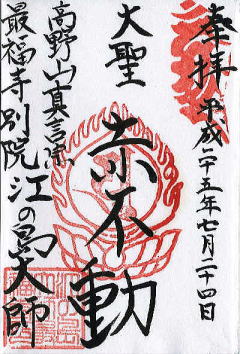 奉拝
平成二十五年七月二十四日
大聖
赤不動
高野山真言宗
最福寺別院江の島大師